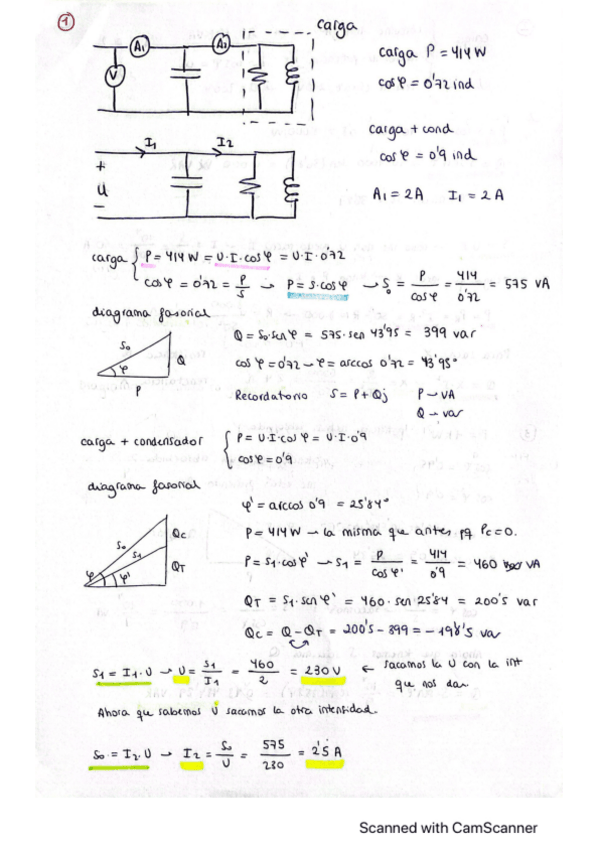 1
carga
A1
A2
V
carga P = 414 W
cos φ = 0'72 ind
carga + cond
cos φ = 0'9 ind
A1 = 2A I1 = 2A
I1
I2
+
U
-
carga { P = 414 W = U·I·cos φ = U·I·0'72
cos φ = 0'72 = P/S → P = S·cos φ → S0 = P/cos φ = 414/0'72 = 575 VA
diagrama fasorial
S0
φ
P
Q
Q = S0·sen φ = 575·sen 43'95 = 399 var
cos φ = 0'72 → φ = arccos 0'72 = 43'95°
Recordatorio S = P + Qj P → VA
Q → var
carga + condensador { P = U·I·cos φ = U·I·0'9
cos φ = 0'9
diagrama fasorial
S0
S1
φ
φ'
QC
QT
φ' = arccos 0'9 = 25'84°
P = 414 W → la misma que antes pq PC = 0.
P = S1·cos φ' → S1 = P/cos φ' = 414/0'9 = 460 VA
QT = S1·sen φ' = 460·sen 25'84 = 200'5 var
QC = Q - QT = 200'5 - 399 = -198'5 var
S1 = I1·U → U = S1/I1 = 460/2 = 230 V ← sacamos la U con la int
que nos dan.
Ahora que sabemos U sacamos la otra intensidad.
S0 = I2·U → I2 = S0/U = 575/230 = 2'5 A
Scanned with CamScanner